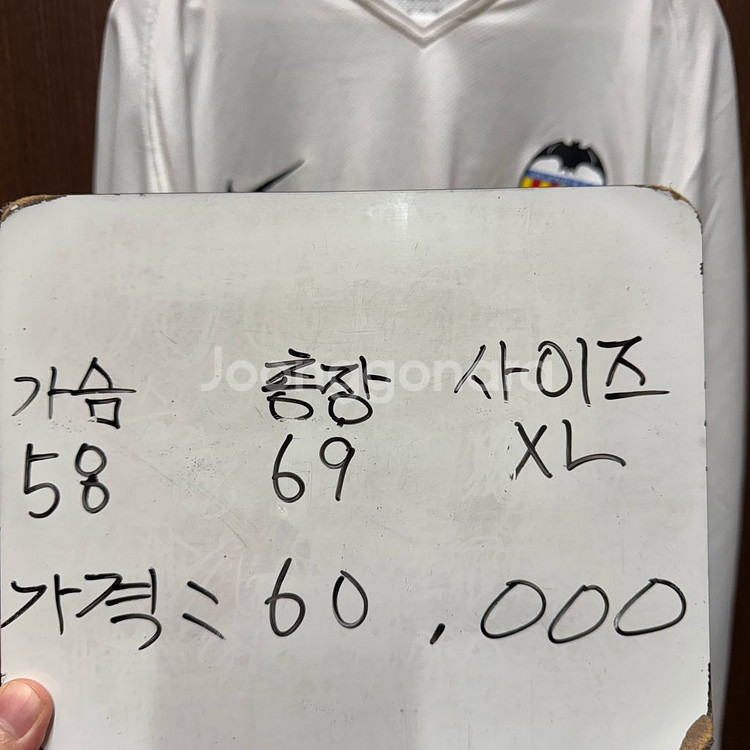 가슴 총장 사이즈
58 69 XL
가격 = 60,000
Joonggonara